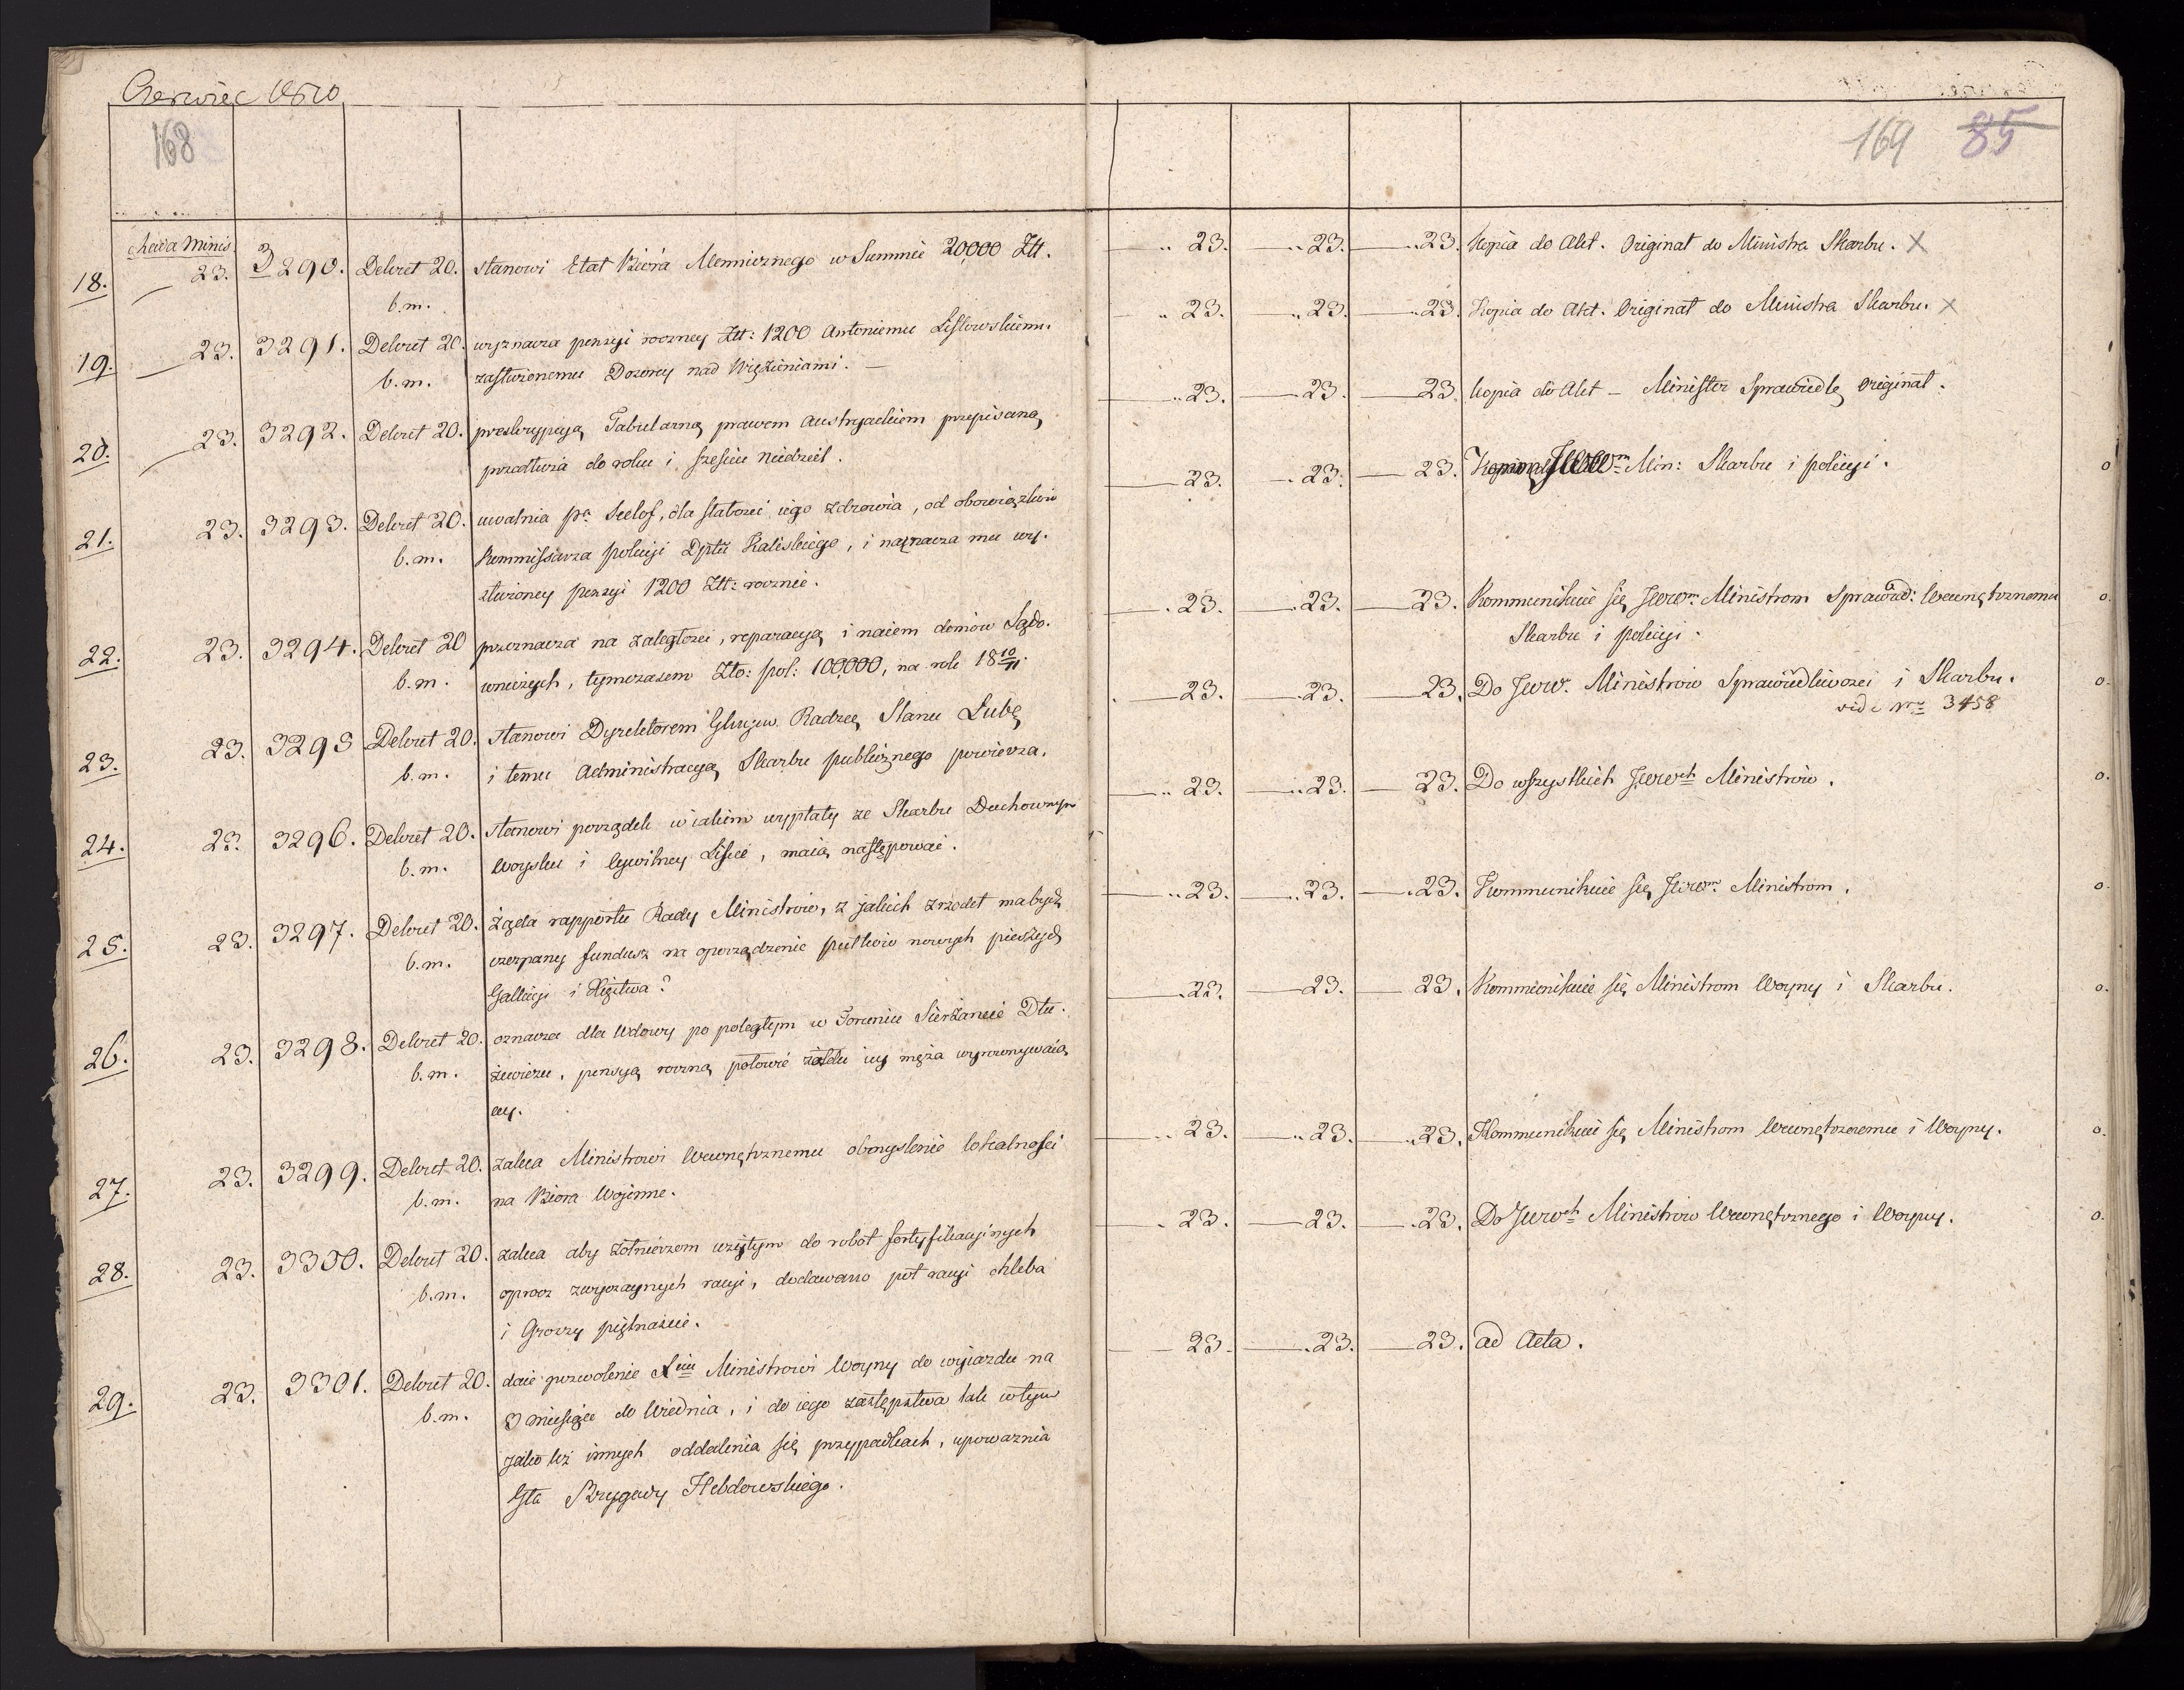 Czerwiec 1810
168
Rada Minis.
18. 23. 3290. Dekret 20. stanowi Etat Biora Mennicznego w Summie 20,000 Złt.
b.m.
19. 23. 3291. Dekret 20. wyznacza pensyi roczney Złt: 1200 Antoniemu Lisłowskiemu
b.m. zasłużonemu Dozorcy nad Więzieniami. —
20. 23. 3292. Dekret 20. preskrypcyą Tabularną prawem Austryackiem przepisaną
przedłuża do roku i sześciu Niedziel.
21. 23. 3293. Dekret 20. uwalnia pa, dla słabości iego zdrowia, od obowiązków
b.m. Kommissarza policyi Dptu Kaliskiego, i naznacza mu wy-
służoney pensyi 1200 Złt: rocznie.
22. 23. 3294. Dekret 20 przeznacza na zaległości, reparacyą i naiem domów Sądo-
b.m. wniczych, tymczasem Zło: pol: 100,000, na rok 18 10/11.
23. 23. 3295 Dekret 20. stanowi Dyrektorem Radzcę Stanu Łubę
b.m. i temu Administracyą Skarbu publicznego powierza.
24. 23. 3296. Dekret 20. stanowi porządek w iakim wypłaty ze Skarbu Duchownym
b.m. Woysku i Cywilney Liście, maią następować.
25. 23. 3297. Dekret 20. żąda rapportu Rady Ministrów, z jakich zrzodeł ma bydź
b.m. czerpany fundusz na oporządzenie pułków nowych pieszych
Gallicyi i Xięztwa?
26. 23. 3298. Dekret 20. oznacza dla Wdowy po poległym w Toruniu Sierżancie Dłu-
b.m. żewiczu, pensyą roczną połowie żołdu iey męża wyrownywaią
cey.
27. 23. 3299. Dekret 20. zaleca Ministrowi Wewnętrznemu obmyslenie lokalności
b.m. na Biora Wojenne.
28. 23. 3300. Dekret 20. zaleca aby żołnierzom wziętym do robot fortyfikacyinych
b.m. oprocz zwyczaynych racyi, dodawano poł racyi chleba
i Groszy piętnaście.
29. 23. 3301. Dekret 20. daie pozwolenie Xciu Ministrowi Woyny do wyiazdu na
b.m. 3 miesiące do Wiednia, i do iego zastępstwa tak w tym
jako też innych oddalenia się przypadkach, upoważnia
Gła Brygady Hebdowskiego.
169 85
23. 23. 23. Kopia do Akt. Originał do Ministra Skarbu. X
23. 23. 23. Kopia do Akt. Originał do Ministra Skarbu. X
23. 23. 23. Kopia do Akt — Minister Sprawiedlę Originał.
23. 23. 23. Min: Skarbu i policyi. o
23. 23. 23. Kommunikuie się JWWm Ministrom Sprawied: Wewnętrznemu o.
Skarbu i policyi.
23. 23. 23. Do JWW. Ministrów Sprawiedliwości i Skarbu. o.
vide Nro 3458
23. 23. 23. Do wszystkich JWWch Ministrów. o.
23. 23. 23. Kommunikuie się JWWm Ministrom. o.
23. 23. 23. Kommunikuie się Ministrom Woyny i Skarbu. o.
23. 23. 23. Kommunikuie się Ministrom Wewnętrznemu i Woyny. o.
23. 23. 23. Do JWWch Ministrów Wewnętrznego i Woyny. o.
23. 23. 23. ad Acta.